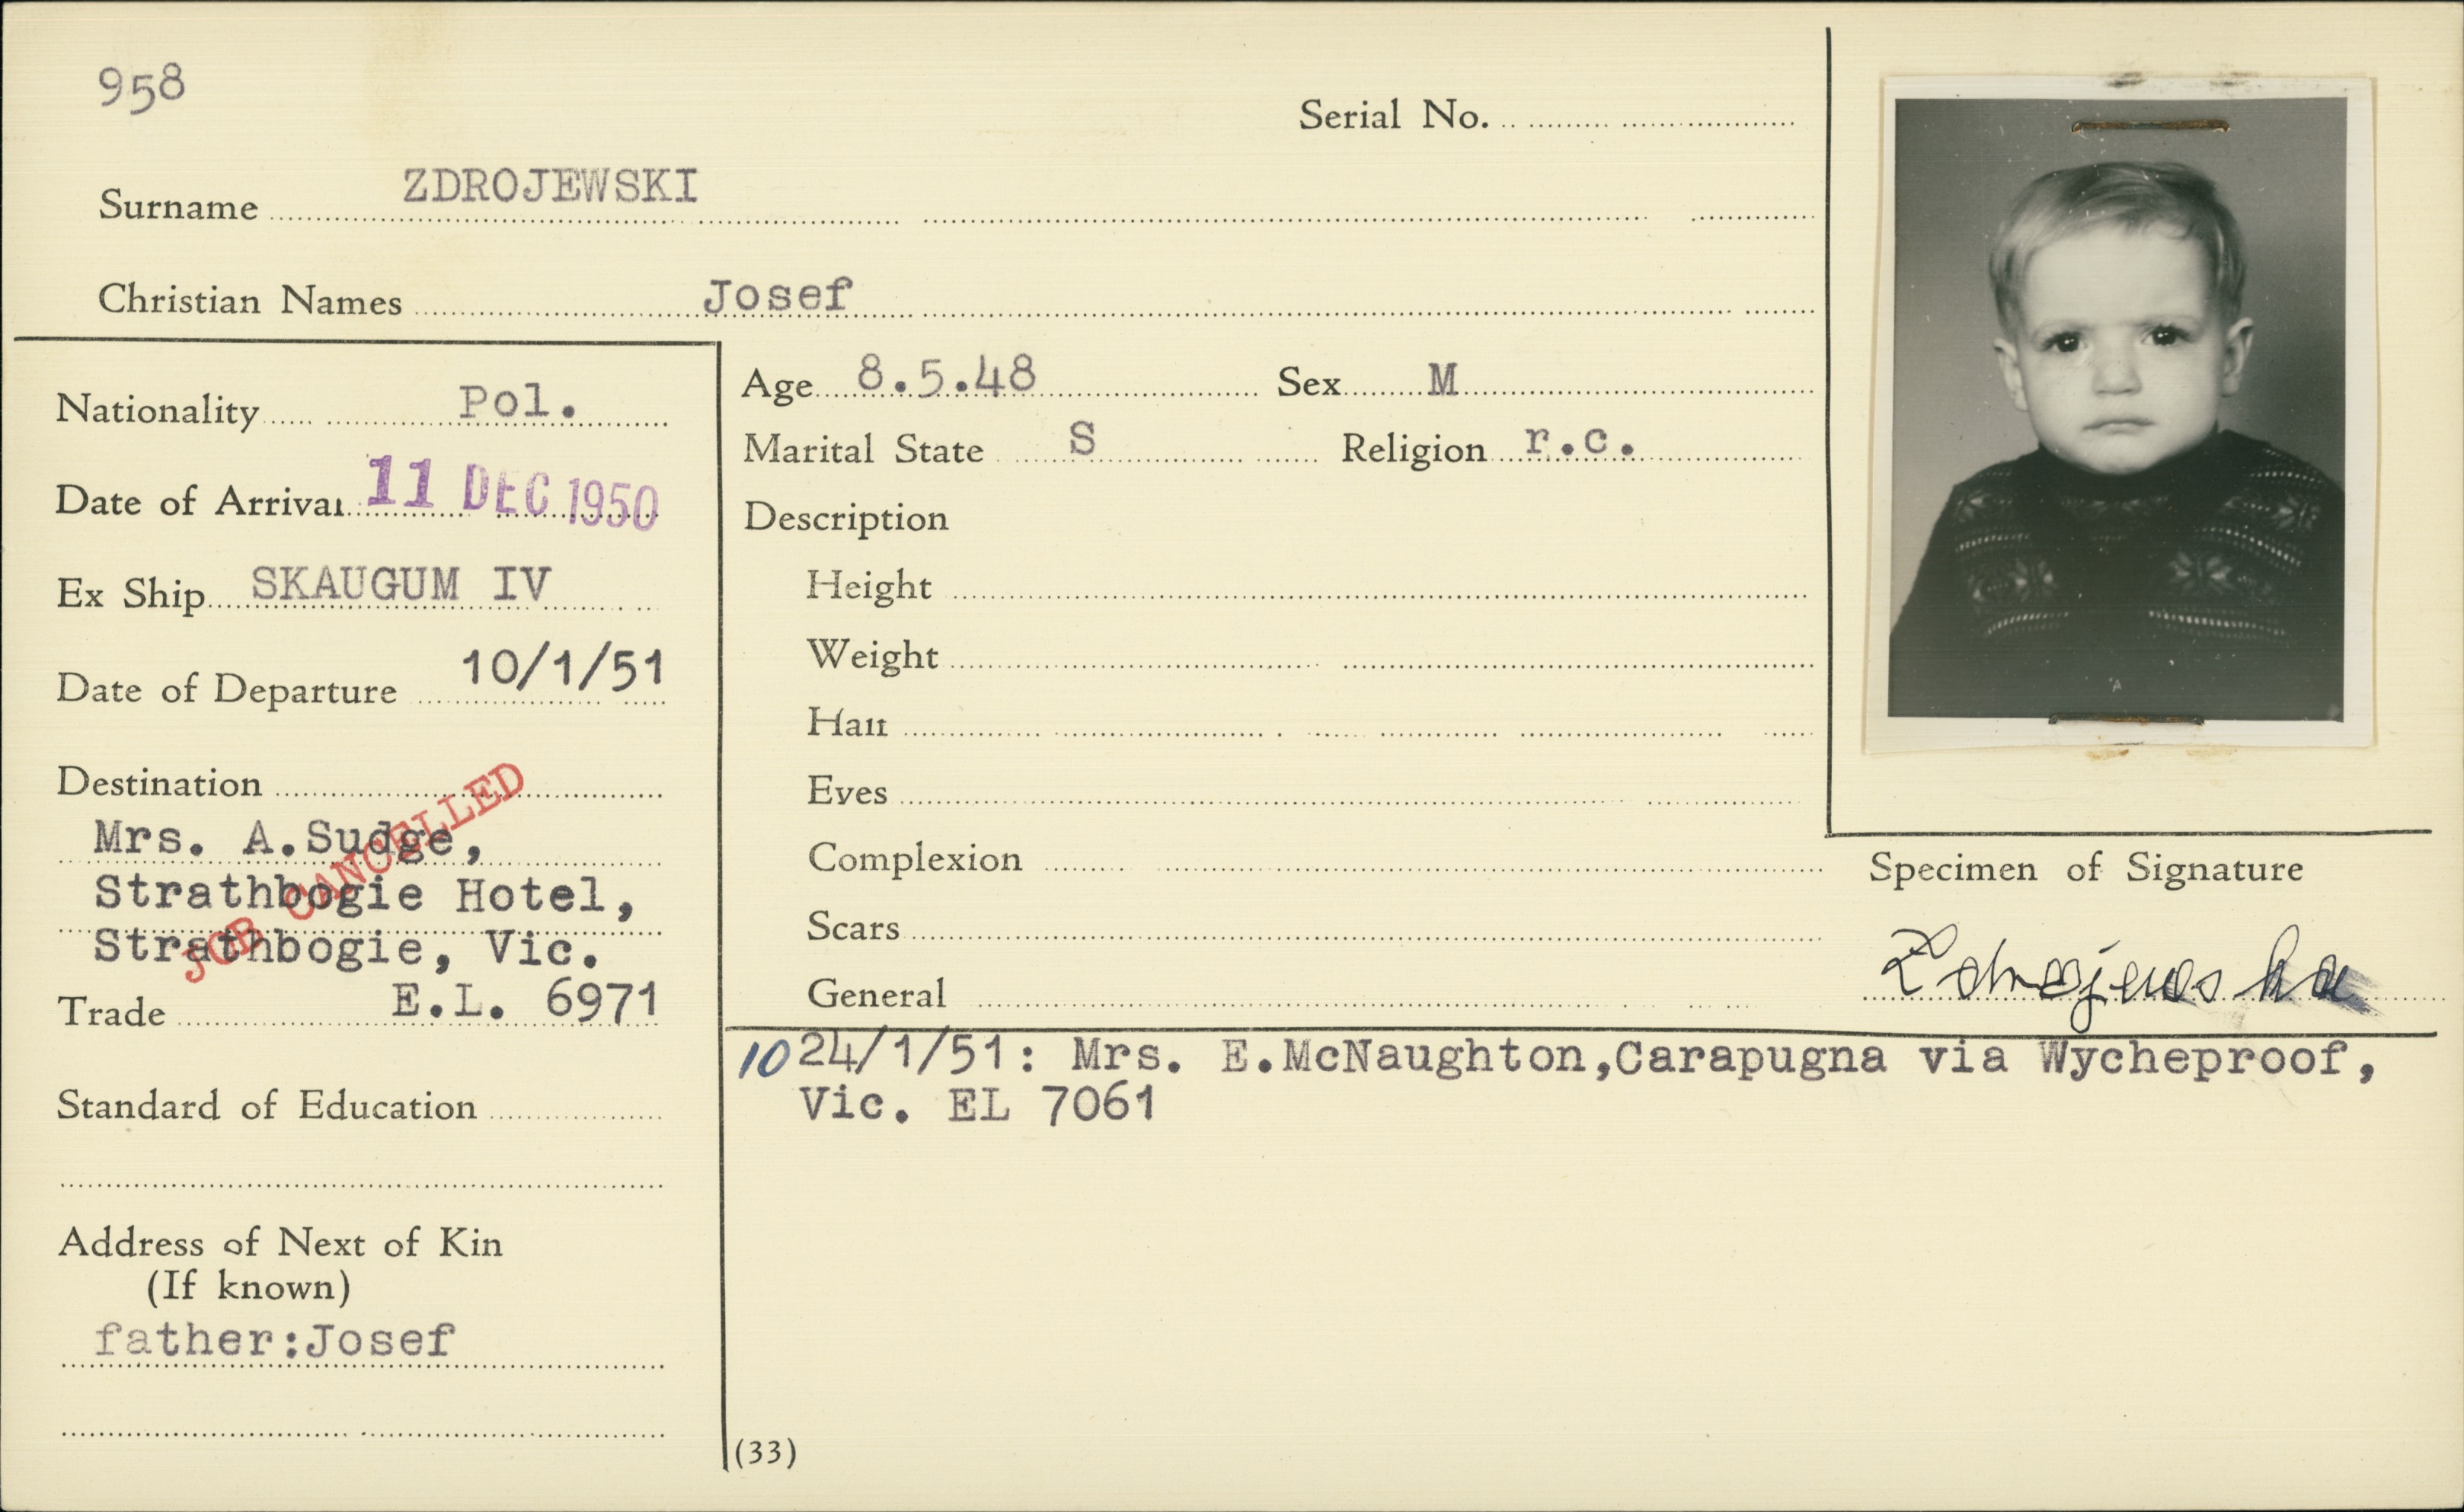 958
Serial No.
Surname ZDROJEWSKI
Christian Names Josef
Nationality Pol.
Date of Arrival 11 DEC 1950
Ex Ship SKAUGUM IV
Date of Departure 10/1/51
Destination
Mrs. A.Sudge,
Strathbogie Hotel,
Strathbogie, Vic.
JOB CANCELLED
Trade E.L. 6971
Standard of Education
Address of Next of Kin
(If known)
father:Josef
Age 8.5.48 Sex M
Marital State S Religion r.c.
Description
Height
Weight
Hair
Eyes
Complexion
Scars
General
Specimen of Signature
Zdrojewska
10 24/1/51: Mrs. E.McNaughton,Carapugna via Wycheproof,
Vic. EL 7061
(33)